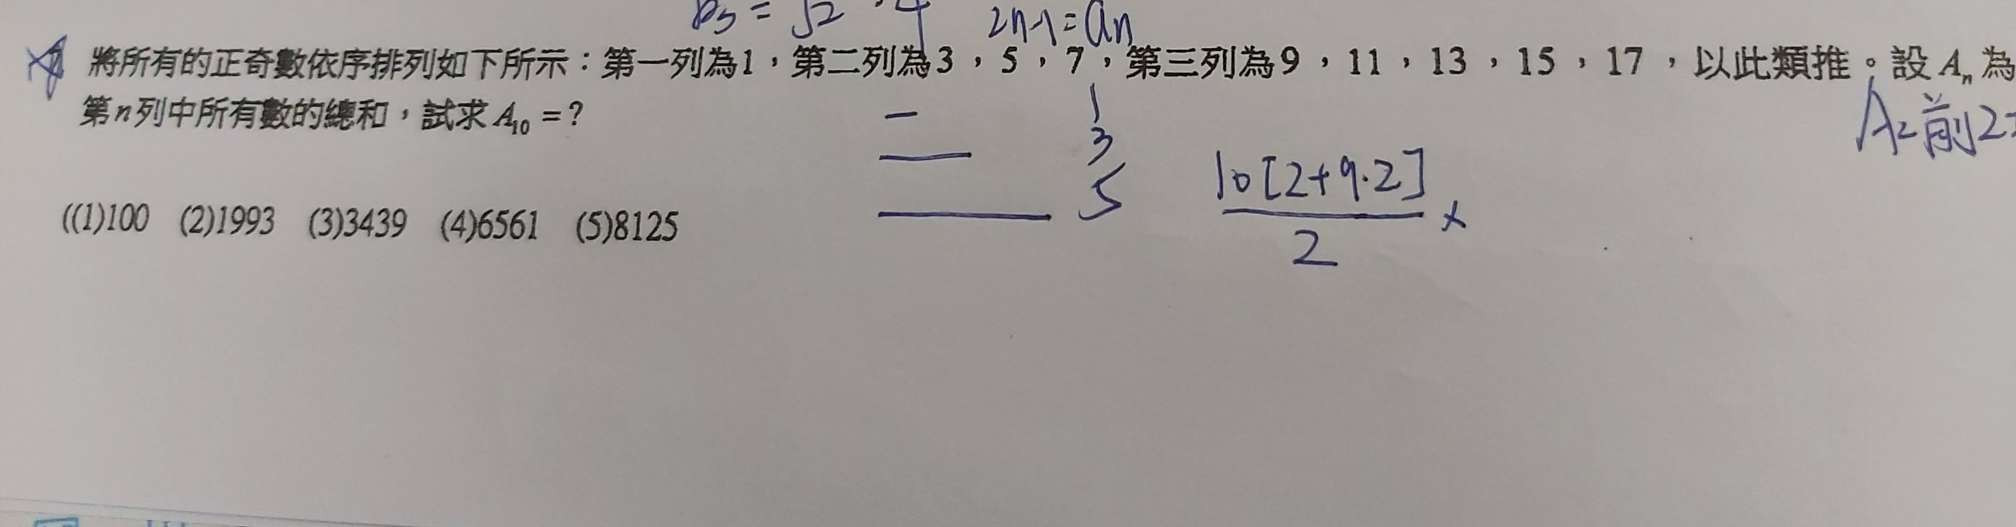 b₃ = √2 · 4 2n-1=an
將所有的正奇數依序排列如下所示：第一列為1，第二列為3，5，7，第三列為9，11，13，15，17，以此類推。設 Aₙ 為
第n列中所有數的總和，試求 A₁₀ =？
A₂前2
一 1
3
5
10[2+9·2]
2
×
((1)100 (2)1993 (3)3439 (4)6561 (5)8125